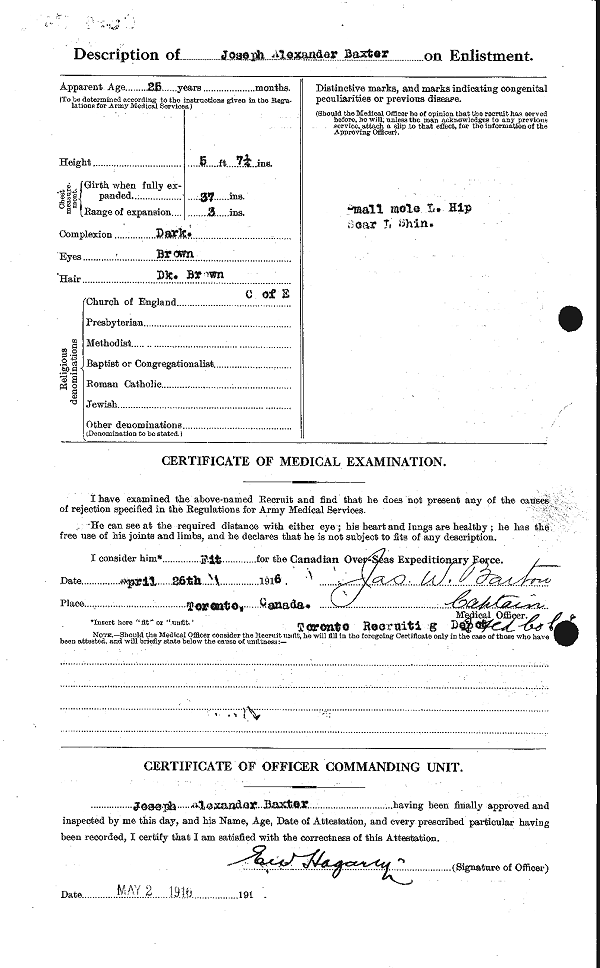 Description of Joseph Alexander Baxter on Enlistment.
Apparent Age 25 years months.
(To be determined according to the instructions given in the Regulations for Army Medical Services.)
Height 5 ft 7½ ins.
Chest measurement.
Girth when fully expanded 37 ins.
Range of expansion 3 ins.
Complexion Dark.
Eyes Brown
Hair Dk. Brown
Religious denominations
C of E
Church of England
Presbyterian
Methodist
Baptist or Congregationalist
Roman Catholic
Jewish
Other denominations
(Denomination to be stated.)
Distinctive marks, and marks indicating congenital
peculiarities or previous disease.
(Should the Medical Officer be of opinion that the recruit has served
before, he will, unless the man acknowledges to any previous
service, attach a slip to that effect, for the information of the
Approving Officer).
Small mole L. Hip
Scar L Shin.
CERTIFICATE OF MEDICAL EXAMINATION.
I have examined the above-named Recruit and find that he does not present any of the causes
of rejection specified in the Regulations for Army Medical Services.
He can see at the required distance with either eye; his heart and lungs are healthy; he has the
free use of his joints and limbs, and he declares that he is not subject to fits of any description.
I consider him* Fit for the Canadian Over-Seas Expeditionary Force.
Date April 26th 1916. Jas. W. Barton
Place Toronto, Canada. Captain
Medical Officer.
*Insert here "fit" or "unfit."
Toronto Recruiti g Depot
NOTE.—Should the Medical Officer consider the Recruit unfit, he will fill in the foregoing Certificate only in the case of those who have
been attested, and will briefly state below the cause of unfitness:—
CERTIFICATE OF OFFICER COMMANDING UNIT.
Joseph Alexander Baxter having been finally approved and
inspected by me this day, and his Name, Age, Date of Attestation, and every prescribed particular having
been recorded, I certify that I am satisfied with the correctness of this Attestation.
Hagarty (Signature of Officer)
Date MAY 2 1916 191 .